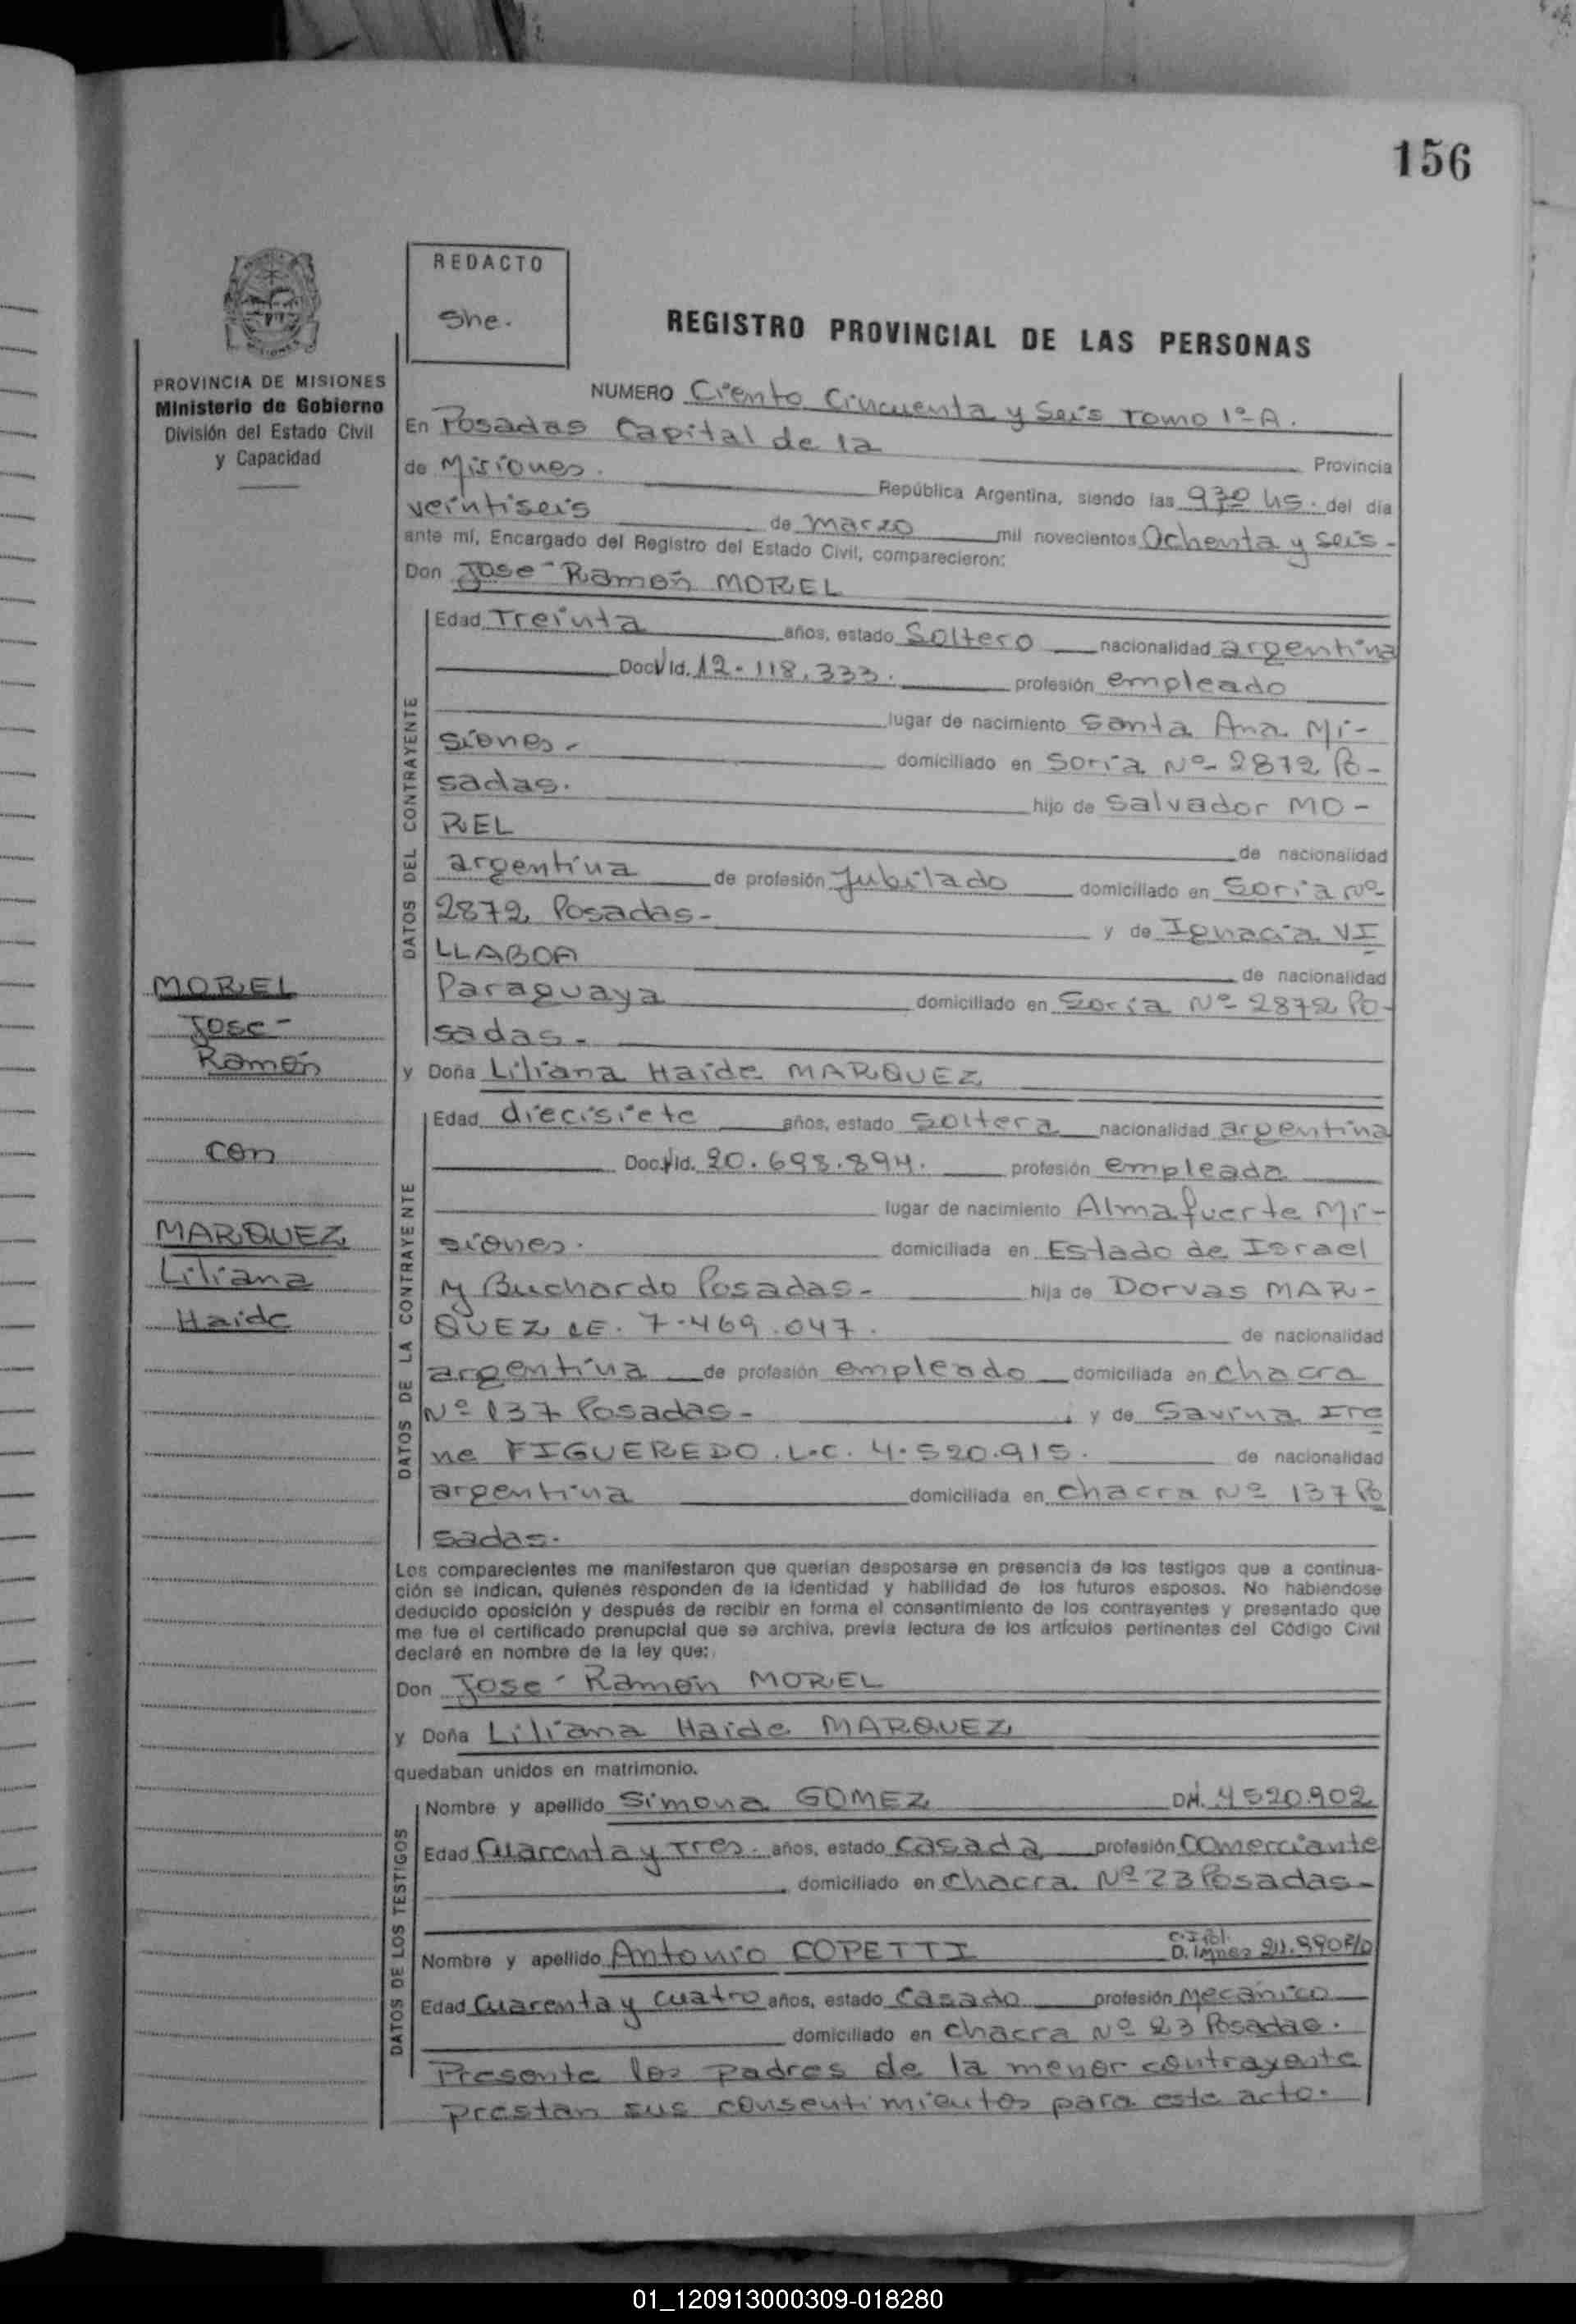 156
REDACTO
She.
REGISTRO PROVINCIAL DE LAS PERSONAS
MISIONES
PROVINCIA DE MISIONES
Ministerio de Gobierno
División del Estado Civil
y Capacidad
NUMERO Ciento Cincuenta y Seis Tomo 1º-A.
En Posadas Capital de la Provincia
de Misiones. República Argentina, siendo las 9,30 hs. del día
veintiseis de marzo mil novecientos Ochenta y seis-
ante mí, Encargado del Registro del Estado Civil, comparecieron:
Don Jose Ramón MOREL
DATOS DEL CONTRAYENTE
Edad Treinta años, estado Soltero nacionalidad argentina
Doc. Id. 12.118.333. profesión empleado
lugar de nacimiento Santa Ana Mi-
siones.- domiciliado en Soria Nº 2872 Po-
sadas. hijo de Salvador MO-
REL de nacionalidad
argentina de profesión Jubilado domiciliado en Soria Nº
2872 Posadas- y de Ignacia VI
LLABOA de nacionalidad
Paraguaya domiciliado en Soria Nº 2872 Po-
sadas.-
MOREL
Jose
Ramón
con
MARQUEZ
Liliana
Haide
y Doña Liliana Haide MARQUEZ
DATOS DE LA CONTRAYENTE
Edad diecisiete años, estado Soltera nacionalidad argentina
Doc. Id. 20.698.894. profesión empleada
lugar de nacimiento Almafuerte Mi-
siones. domiciliada en Estado de Israel
y Buchardo Posadas- hija de Dorvas MAR-
QUEZ LE. 7.469.047. de nacionalidad
argentina de profesión empleado domiciliada en Chacra
Nº 137 Posadas- y de Savina Ire
ne FIGUEREDO. L.C. 4.520.915. de nacionalidad
argentina domiciliada en Chacra Nº 137 Po
sadas.-
Los comparecientes me manifestaron que querían desposarse en presencia de los testigos que a continua-
ción se indican, quienes responden de la identidad y habilidad de los futuros esposos. No habiendose
deducido oposición y después de recibir en forma el consentimiento de los contrayentes y presentado que
me fue el certificado prenupcial que se archiva, previa lectura de los artículos pertinentes del Código Civil
declaré en nombre de la ley que:
Don Jose Ramón MOREL
y Doña Liliana Haide MARQUEZ
quedaban unidos en matrimonio.
DATOS DE LOS TESTIGOS
Nombre y apellido Simona GOMEZ 4520.902
Edad Cuarenta y Tres. años, estado Casada profesión Comerciante
domiciliado en Chacra Nº 23 Posadas-
Nombre y apellido Antonio COPETTI
Edad Cuarenta y cuatro años, estado Casado profesión Mecánico
domiciliado en Chacra Nº 23 Posadas.
Presente los padres de la menor contrayente
prestan sus consentimientos para este acto.
01_120913000309-018280